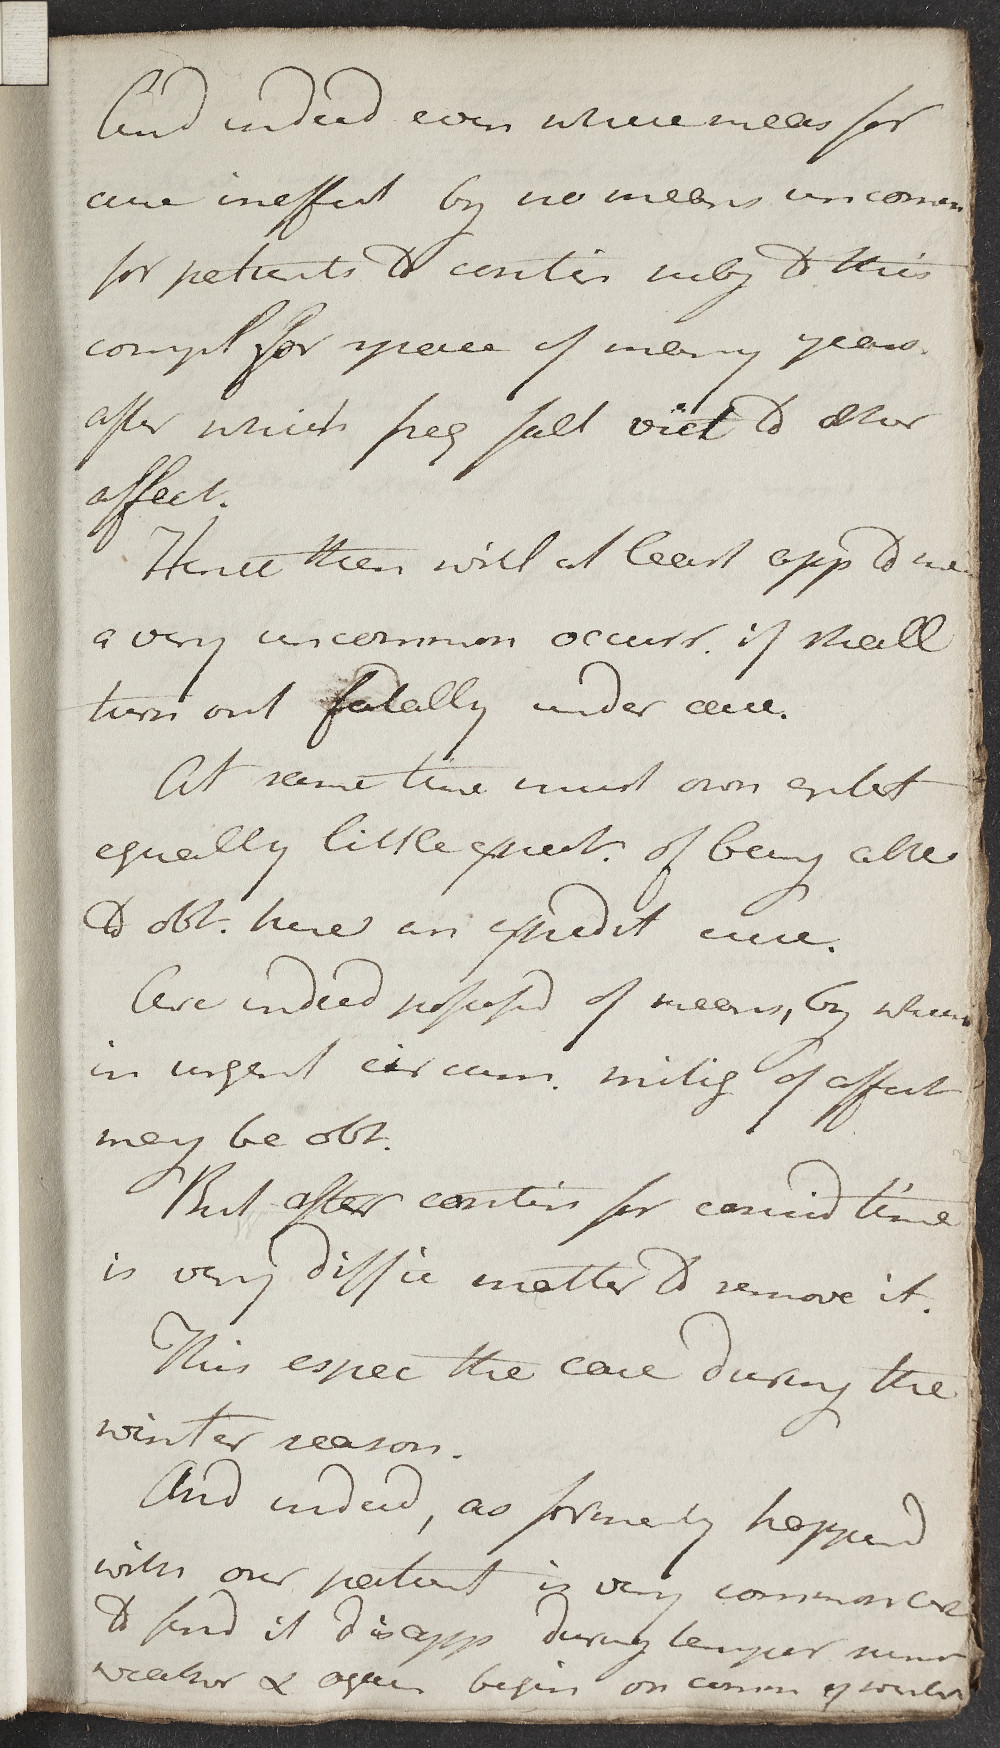 And indeed even where means for
cure ineffect by no means uncommon
for patients to contin subj to this
compl for space of many years.
after which freq fall vict to other
affect.
Hence then will at least app to me
a very uncommon occurr. if shall
turn out fatally under cure.
At same time must own
equally little expect. of being able
to obt. here an expedit cure.
Are indeed possessed of means, by whom
in urgent circum. mitig of affect
may be obt.
But after contin for consid time
is very diffic matter to remove it.
This espec the case during the
winter season.
And indeed, as formerly happened
with our patient is very common
to find it disapp during temper
weather & again begin on comm of winter